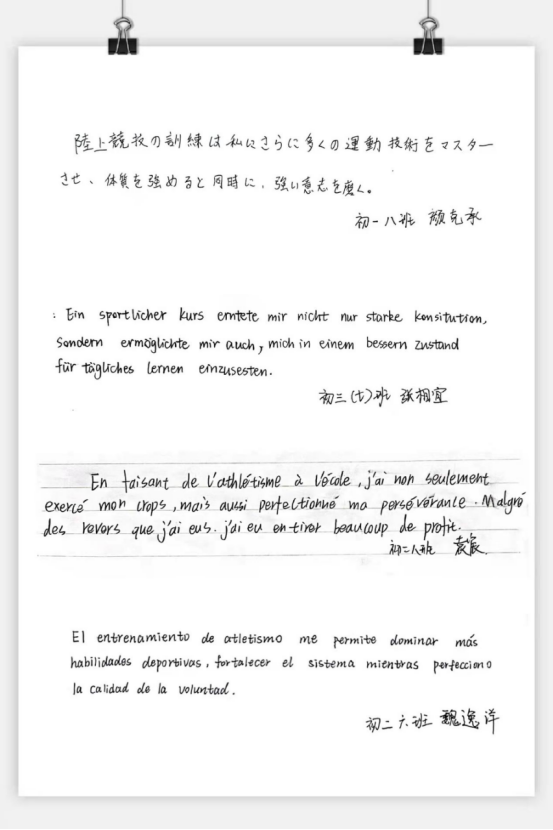 陸上競技の訓練は私にさらに多くの運動技術をマスター
させ、体質を強めると同時に、強い意志を磨く。
初一八班 顔克承
: Ein sportlicher kurs erntete mir nicht nur starke konsitution,
Sondern ermöglichte mir auch, mich in einem bessern zustand
für tägliches lernen einzusesten.
初三(七)班 張相宜
En faisant de l'athlétisme à l'école, j'ai non seulement
exercé mon crops, mais aussi perfectionné ma persévérance. Malgré
des revers que j'ai eus. j'ai eu en tirer beaucoup de profit.
初二八班 袁宸
El entrenamiento de atletismo me permite dominar más
habilidades deportivas, fortalecer el sistema mientras perfecciono
la calidad de la voluntad.
初二六班 魏逸洋